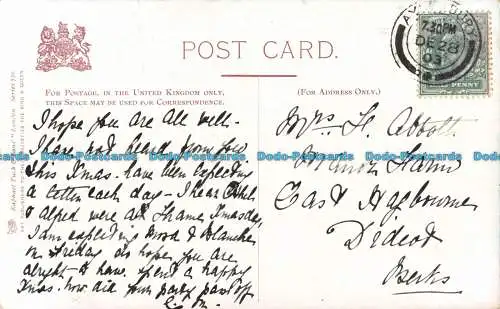 POST CARD.
FOR POSTAGE, IN THE UNITED KINGDOM ONLY,
THIS SPACE MAY BE USED FOR CORRESPONDENCE.
(FOR ADDRESS ONLY.)
7.30 PM
DE 28
03
I hope you are all well -
I have not heard from you
this Xmas - have been expecting
a letter each day - I hear Ethel
& Alfred were at Thame Xmasday,
I am expecting & Blanche
on Friday so hope you are
alright - & have spent a happy
Xmas. how did your party pass off
Mrs H. Abbott
Manor Farm
East Hagbourne
Didcot
Berks
Dodo-Postcards Dodo-Postcards Dodo-Postcards Dodo-Postcards